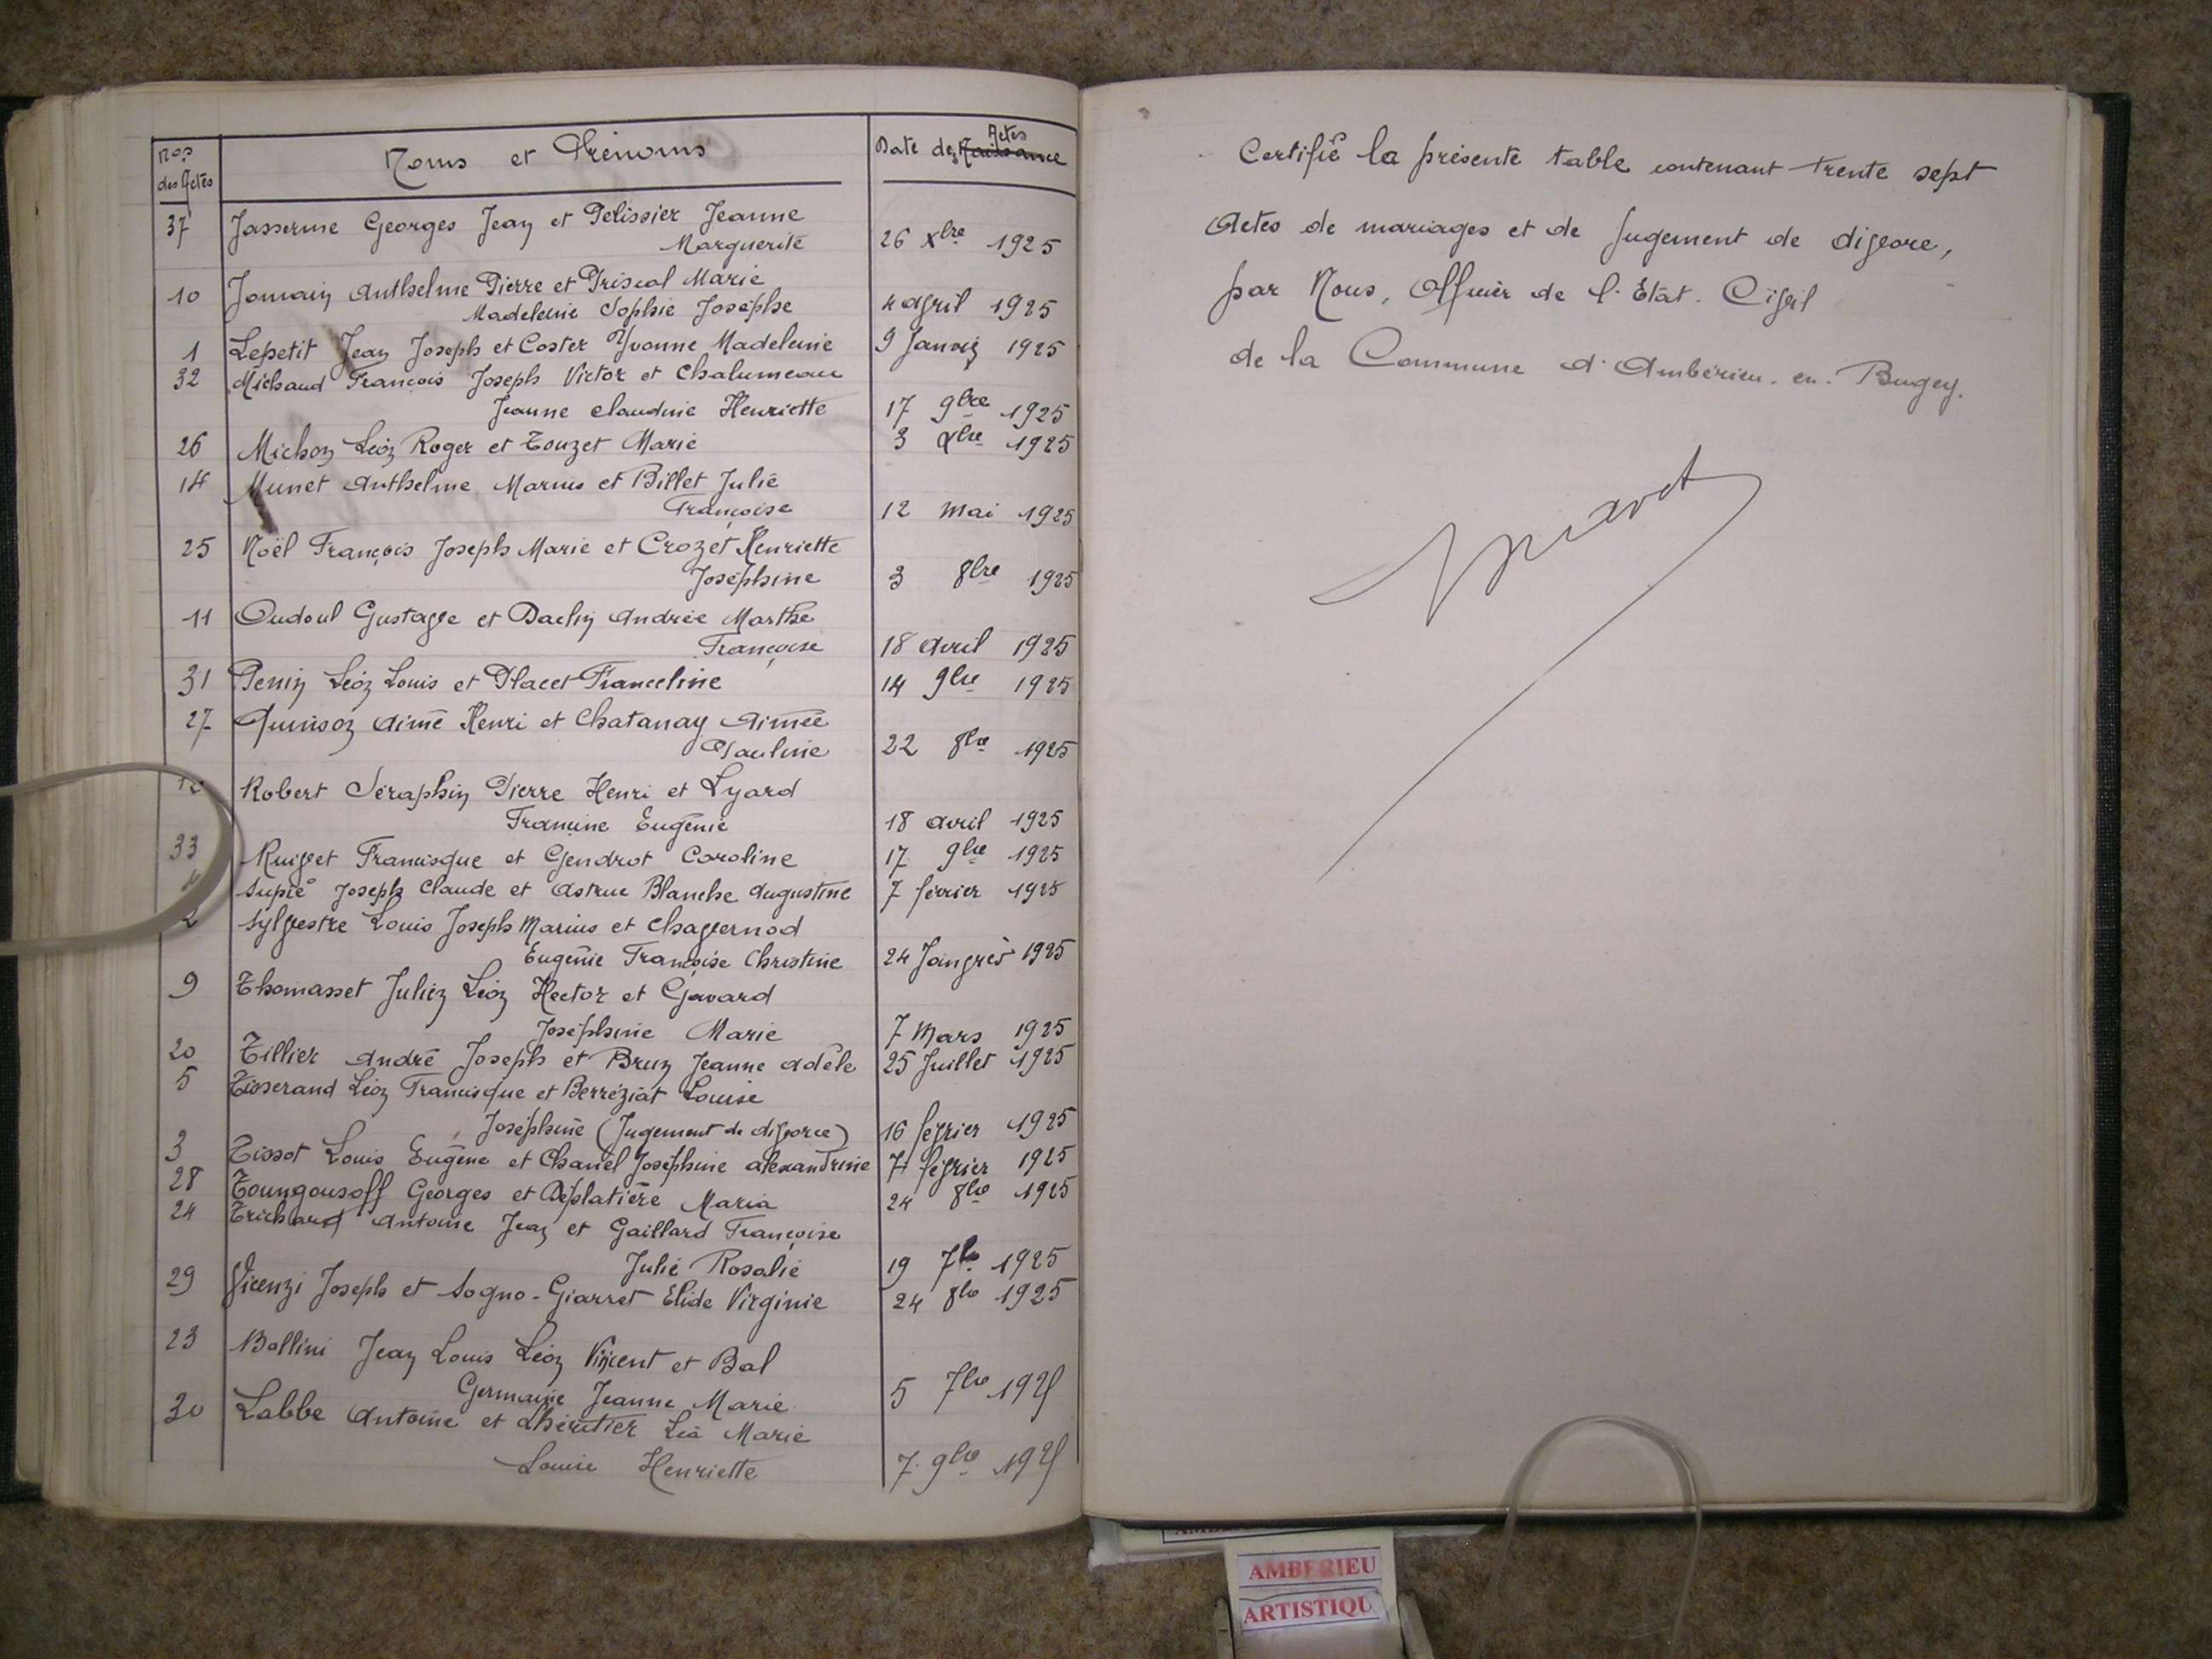 Nos des Actes
Noms et Prénoms
Date des Naissance Actes
37 Jasserme Georges Jean et Pelissier Jeanne
Marguerite 26 Xbre 1925
10 Jomain Anthelme Pierre et Priscal Marie
Madeleine Sophie Josephe 4 avril 1925
1 Lepetit Jean Joseph et Coster Yvonne Madeleine 9 Janvier 1925
32 Michaud François Joseph Victor et Chalumeau
Jeanne Claudine Henriette 17 9bre 1925
26 Michon Léon Roger et Touzet Marie 3 1925
14 Munet Anthelme Marius et Billet Julie
Françoise 12 mai 1925
25 Noël François Joseph Marie et Crozet Henriette
Joséphine 3 8bre 1925
11 Oudoul Gustave et Daclin Andrée Marthe
Françoise 18 avril 1925
31 Penin Léon Louis et Placet Franceline 14 9bre 1925
27 Quinson Aimé Henri et Chatanay Aimée
Pauline 22 8bre 1925
12 Robert Séraphin Pierre Henri et Lyard
Francine Eugénie 18 avril 1925
33 Ruivet Francisque et Gendrot Caroline 17 9bre 1925
4 Supié Joseph Claude et Astruc Blanche Augustine 7 février 1925
2 Sylvestre Louis Joseph Marius et Chavernod
Eugénie Françoise Christine 24 Janvier 1925
9 Thomasset Julien Léon Hector et Gavard
Joséphine Marie 7 Mars 1925
20 Tillier André Joseph et Brun Jeanne Adèle 25 Juillet 1925
5 Tisserand Léon Francisque et Berréziat Louise
Joséphine (Jugement de divorce) 16 février 1925
3 Tissot Louis Eugène et Chanel Joséphine Alexandrine 7 février 1925
28 Toungousoff Georges et Déplatière Maria 24 8bre 1925
24 Trichard Antoine Jean et Gaillard Françoise
Julie Rosalie 19 7bre 1925
29 Vicenzi Joseph et Sogno-Giarret Elide Virginie 24 8bre 1925
23 Bollini Jean Louis Léon Vincent et Bal
Germaine Jeanne Marie 5 7bre 1925
30 Labbe Antoine et Lhéritier Léa Marie
Louise Henriette 7 9bre 1925
Certifié la présente table contenant trente sept
Actes de mariages et de Jugement de divorce,
par Nous, Officier de l'Etat. Civil
de la Commune d'Ambérieu. en. Bugey.
AMBERIEU
ARTISTIQU